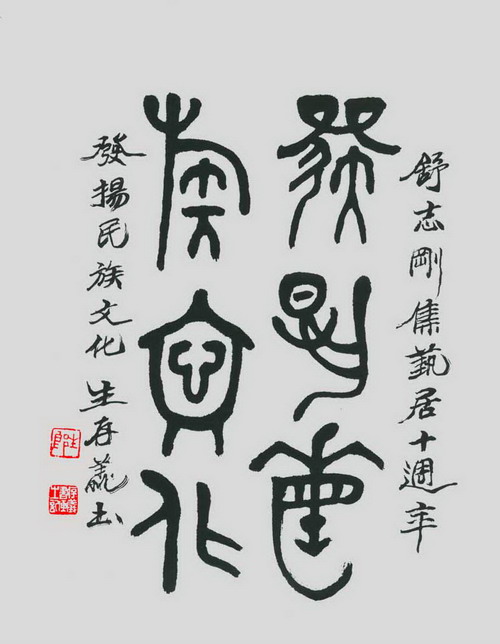 舒志剛集藝居十週年
發揚民
族文化
發揚民族文化 生存義書